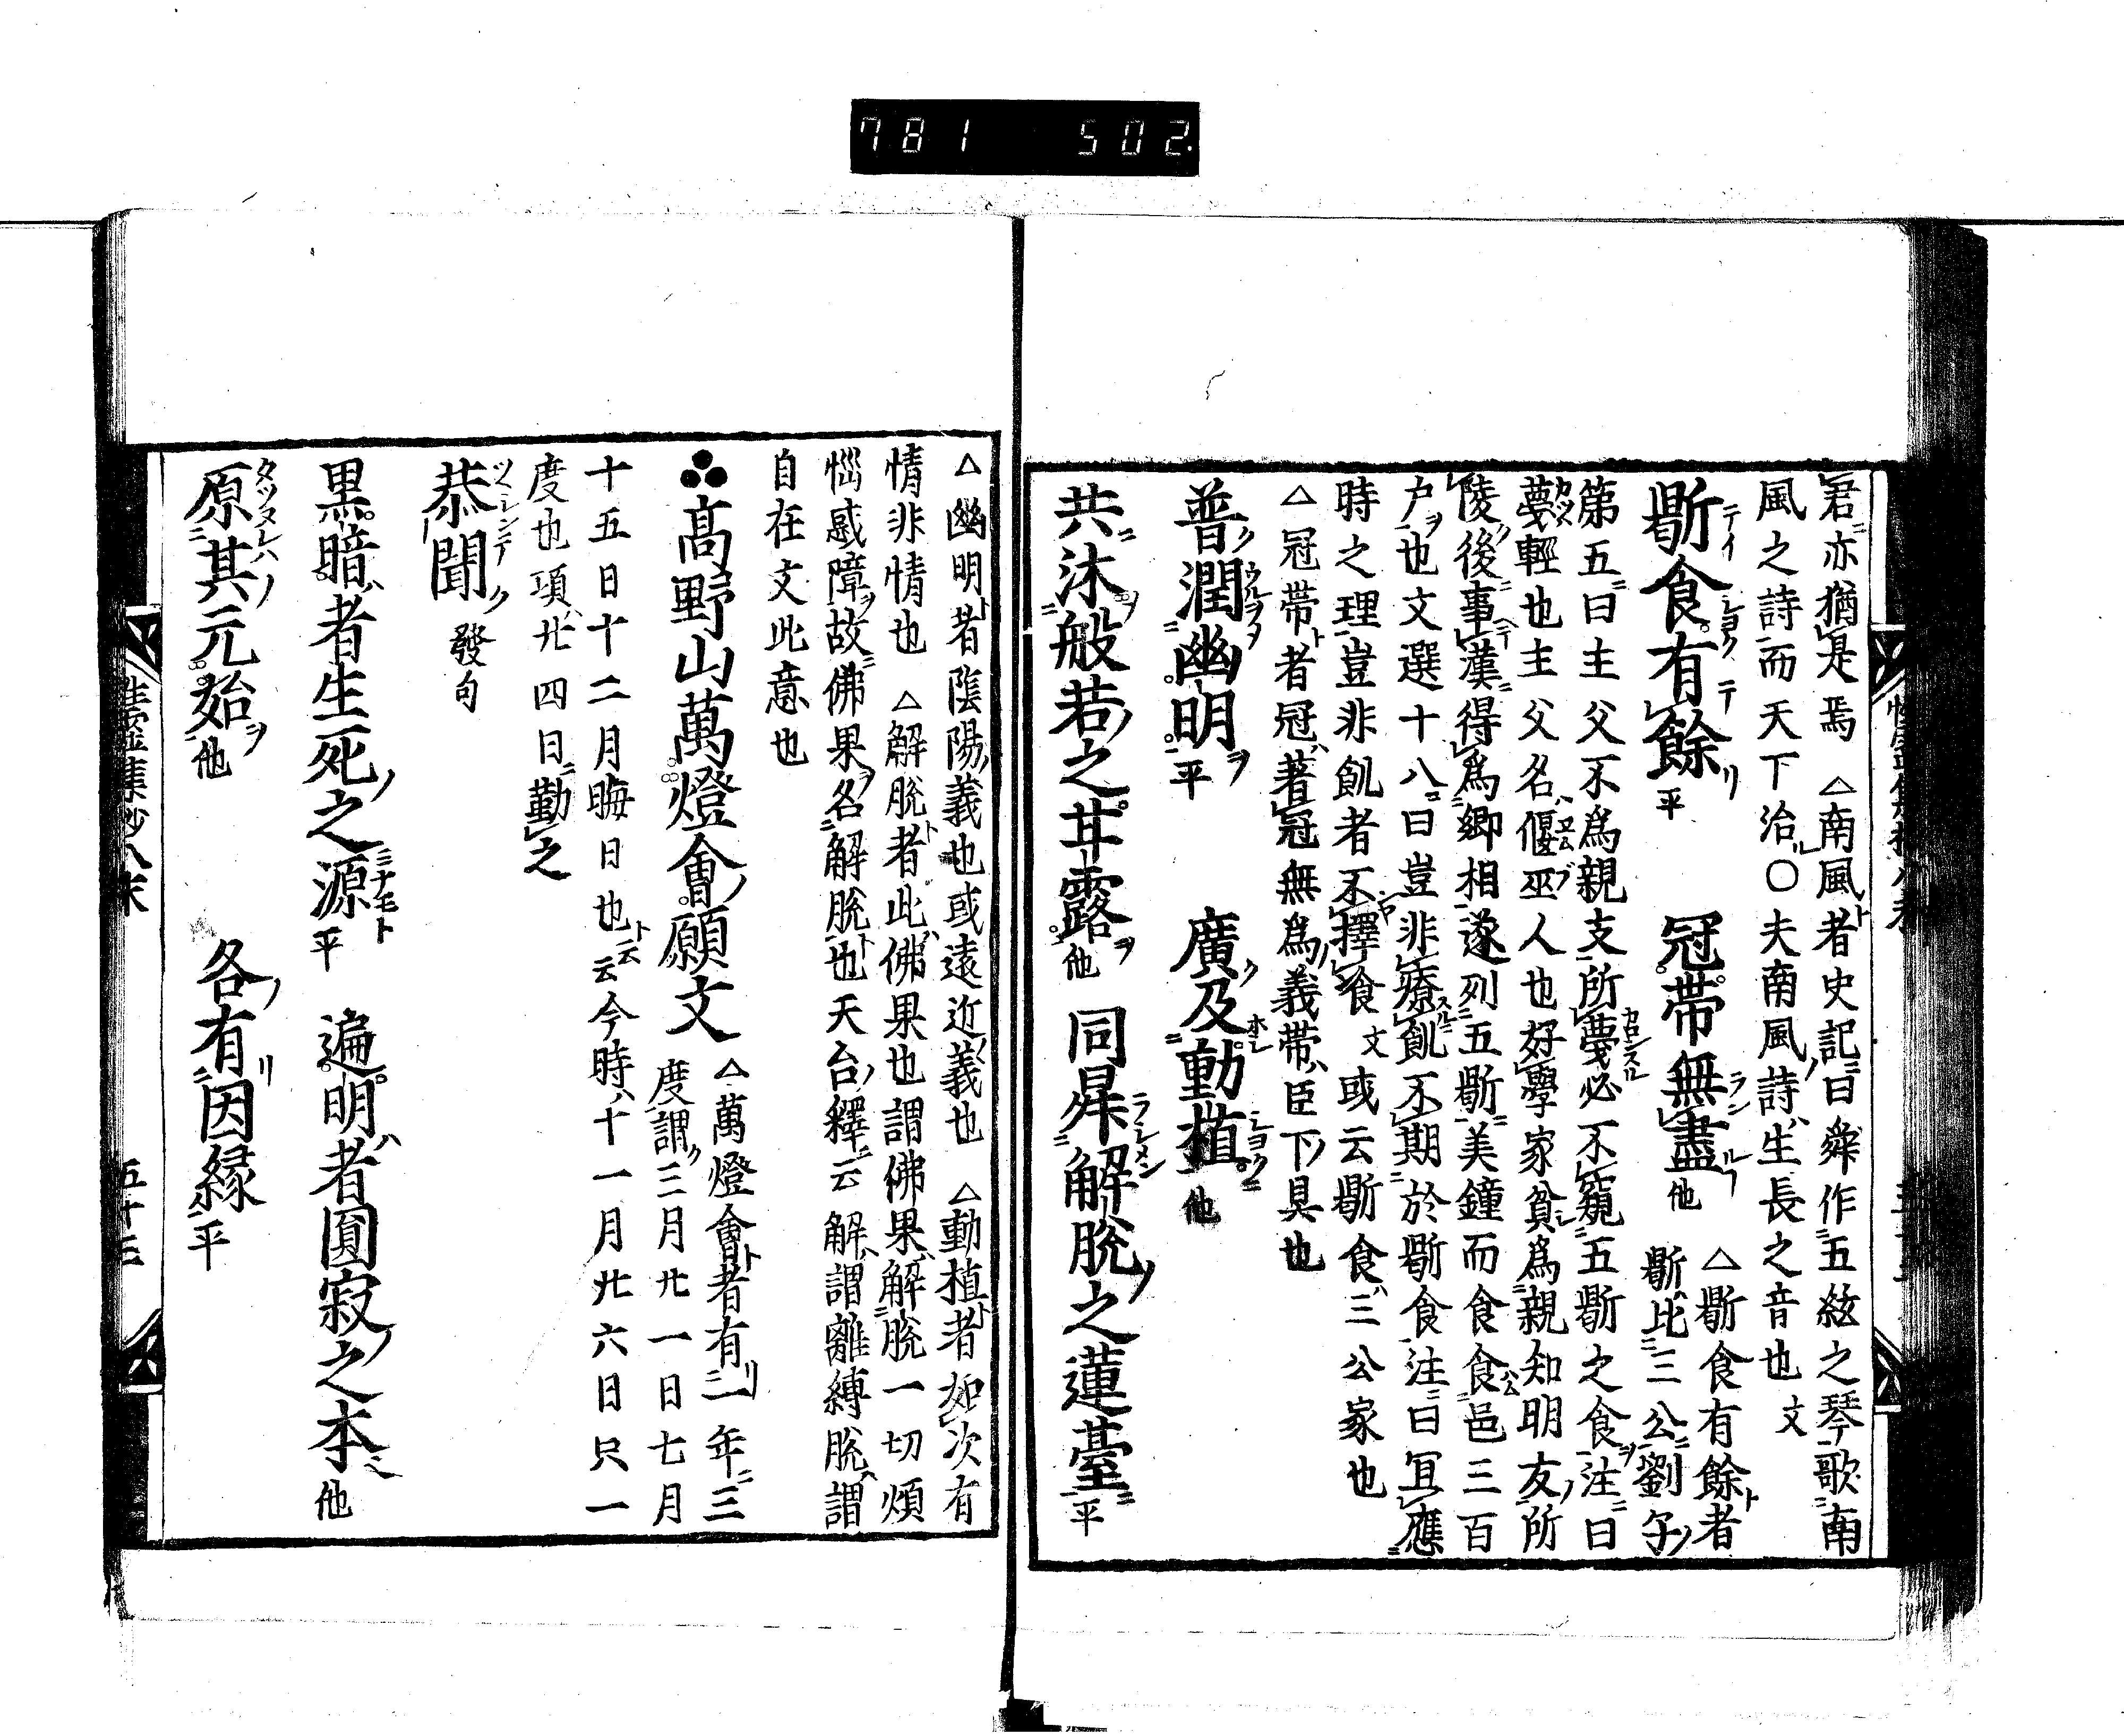 781 502.
君亦猶是焉 △南風者史記曰舜作五絃之琴歌南
風之詩而天下治○夫南風詩生長之音也文
鼎食有餘平 冠帶無盡他 △鼎食有餘者
鼎比三公劉子
第五曰主父不爲親支所蔑必不窺五鼎之食注曰
蔑輕也主父名偃巫人也好學家貧爲親知明友所
陵後事漢得爲卿相遂列五鼎美鐘而食食邑三百
户也文選十八曰豈非療飢不期於鼎食注曰冝應
時之理豈非飢者不擇食文或云鼎食三公家也
△冠帶者冠著冠無爲義帶臣下具也
普潤幽明平 廣及動植他
共沐般若之甘露他 同昇解脱之蓮臺平
△幽明者陰陽義也或遠近義也 △動植者如次有
情非情也 △解脱者此佛果也謂佛果解脱一切煩
惱惑障故佛果名解脱也天台釋云解謂離縛脱謂
自在文此意也
髙野山萬燈會願文 △萬燈會者有二一年三
度謂三月廿一日七月
十五日十二月晦日也云云今時十一月廿六日只一
度也項廿四日勤之
恭聞 發句
黒暗者生死之源平 遍明者圓寂之本他
原其元始他 各有因縁平
性霊集鈔八末 五十三